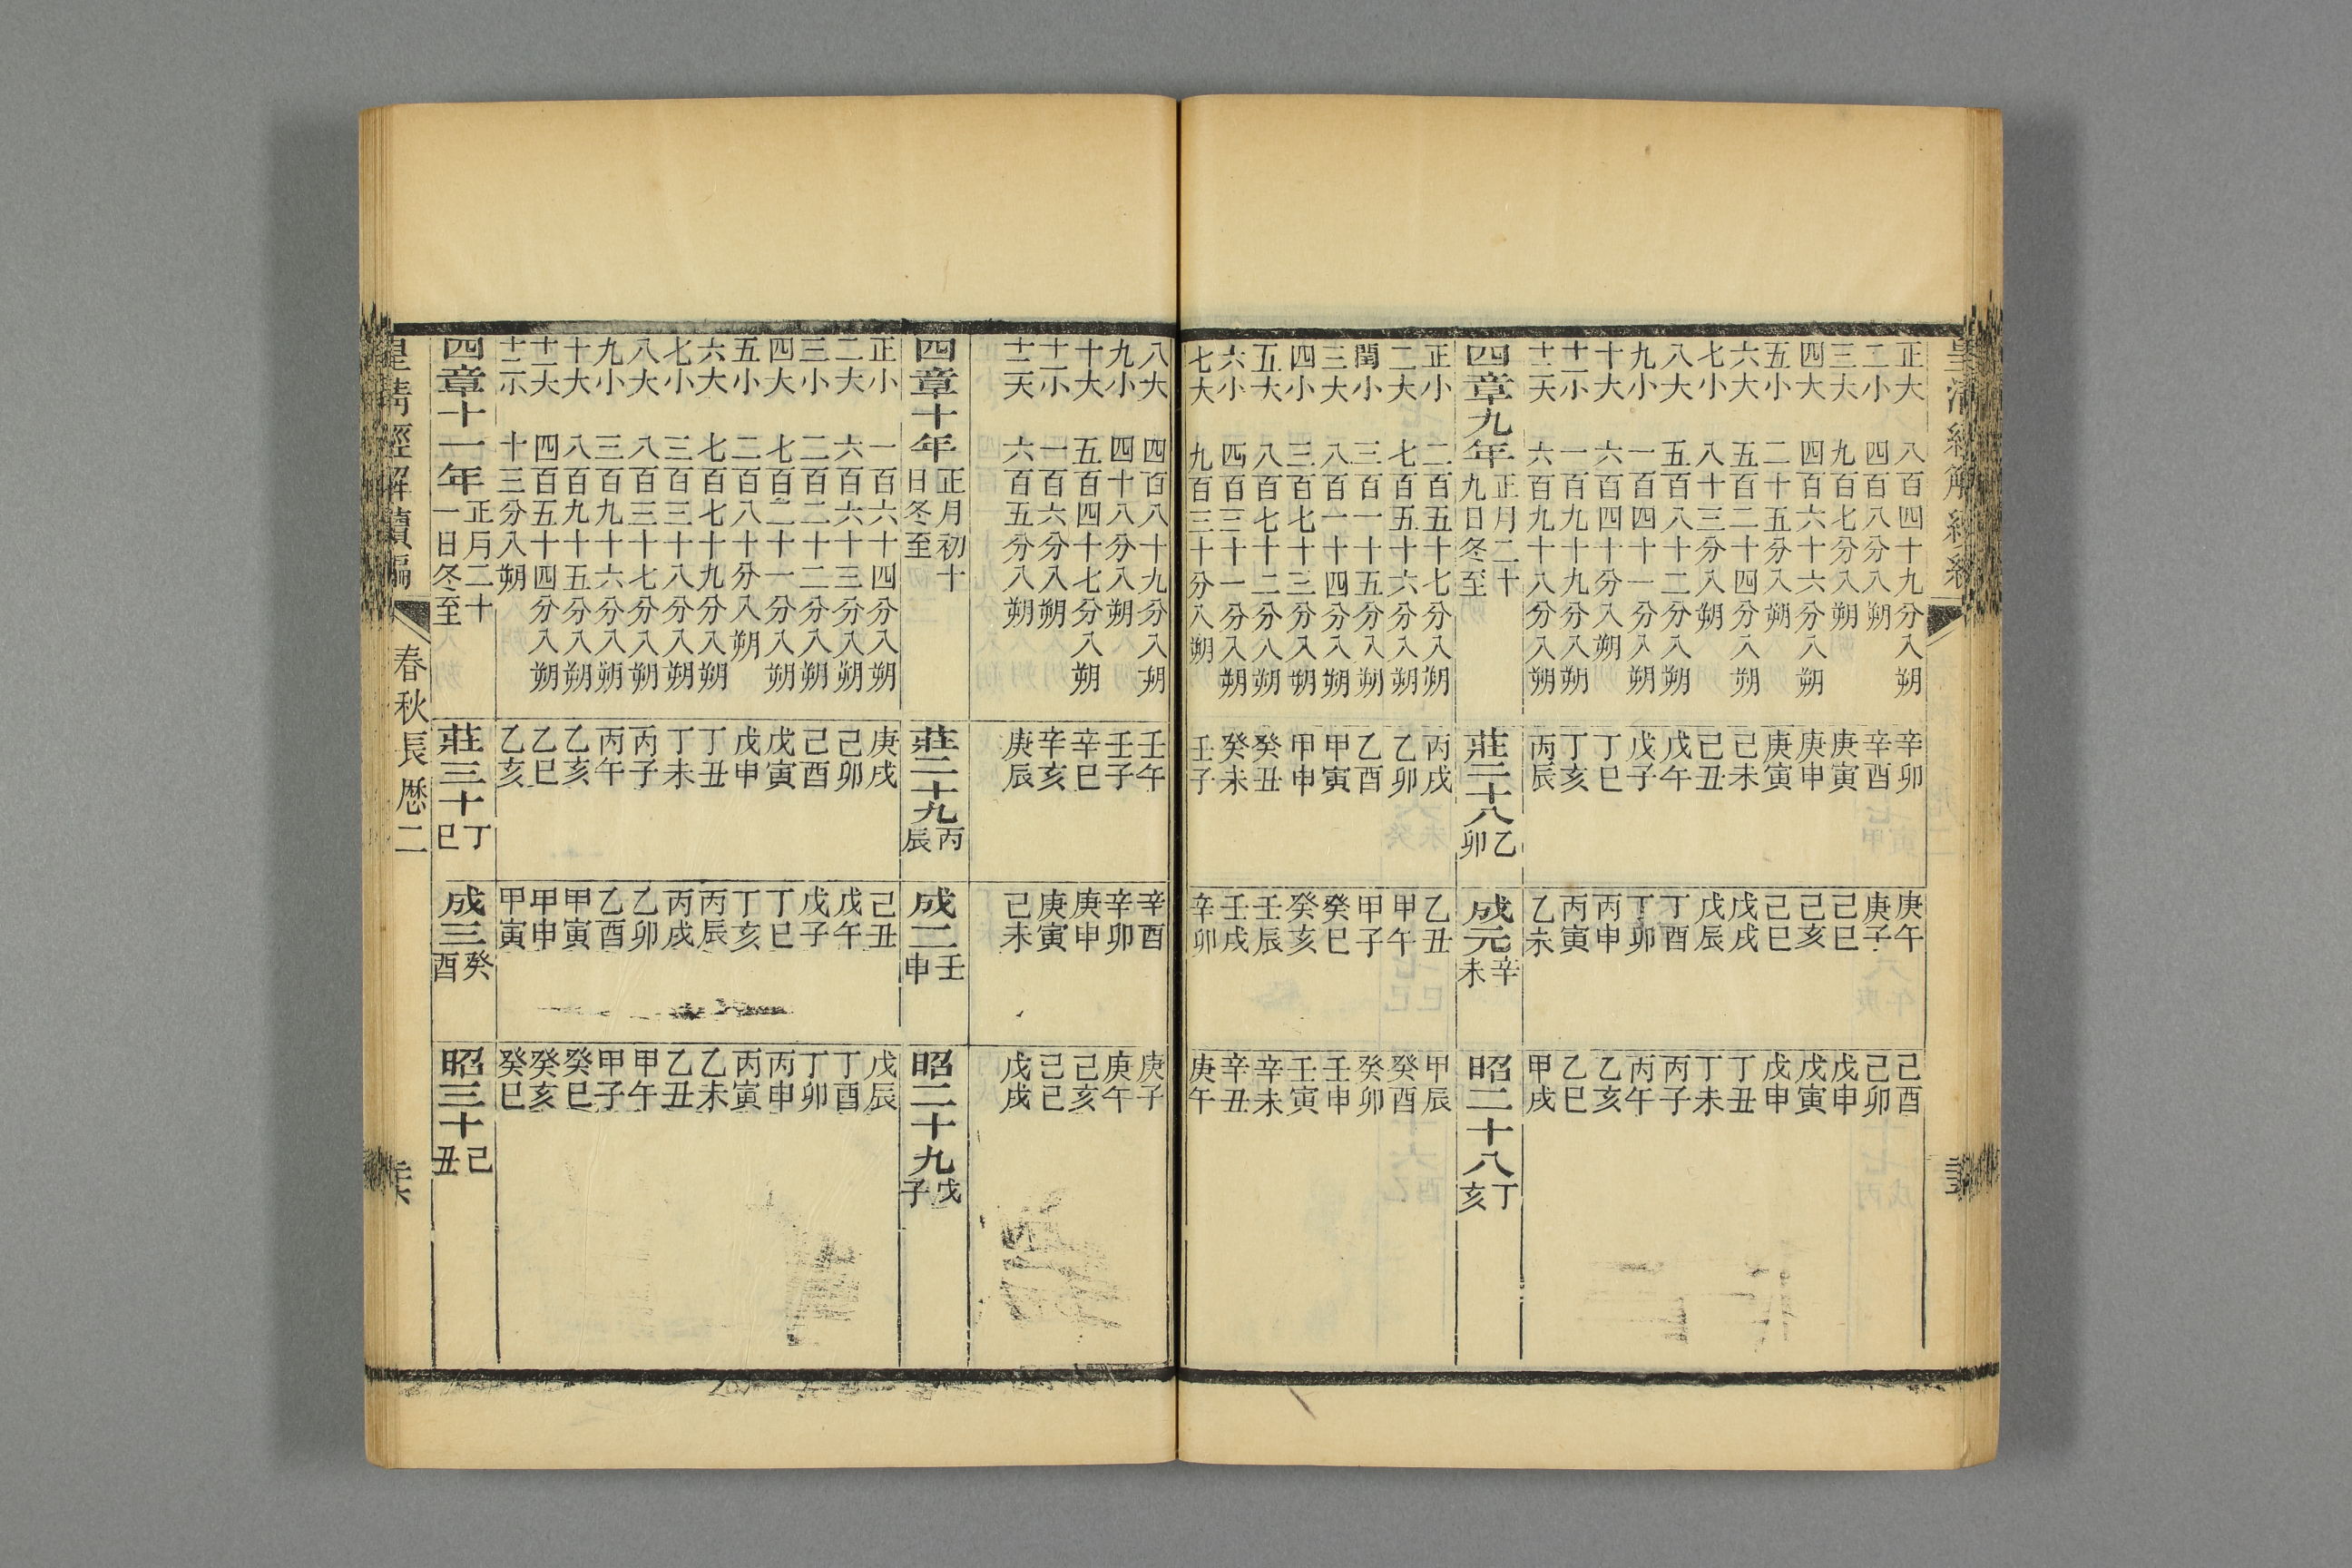 正大 八百四十九分入朔 辛卯 庚午 己酉
二小 四百八分入朔 辛酉 庚子 己卯
三大 九百七分入朔 庚寅 己巳 戊申
四大 四百六十六分入朔 庚申 己亥 戊寅
五小 二十五分入朔 庚寅 己巳 戊申
六大 五百二十四分入朔 己未 戊戌 丁丑
七小 八十三分入朔 己丑 戊辰 丁未
八大 五百八十二分入朔 戊午 丁酉 丙子
九小 一百四十一分入朔 戊子 丁卯 丙午
十大 六百四十分入朔 丁巳 丙申 乙亥
十一小 一百九十九分入朔 丁亥 丙寅 乙巳
十二大 六百九十八分入朔 丙辰 乙未 甲戌
四章九年 正月二十九日冬至 莊二十八 乙卯 成元 辛未 昭二十八 丁亥
正小 二百五十七分入朔 丙戌 乙丑 甲辰
二大 七百五十六分入朔 乙卯 甲午 癸酉
閏小 三百一十五分入朔 乙酉 甲子 癸卯
三大 八百一十四分入朔 甲寅 癸巳 壬申
四小 三百七十三分入朔 甲申 癸亥 壬寅
五大 八百七十二分入朔 癸丑 壬辰 辛未
六小 四百三十一分入朔 癸未 壬戌 辛丑
七大 九百三十分入朔 壬子 辛卯 庚午
八大 四百八十九分入朔 壬午 辛酉 庚子
九小 四十八分入朔 壬子 辛卯 庚午
十大 五百四十七分入朔 辛巳 庚申 己亥
十一小 一百六分入朔 辛亥 庚寅 己巳
十二大 六百五分入朔 庚辰 己未 戊戌
四章十年 正月初十日冬至 莊二十九 丙辰 成二 壬申 昭二十九 戊子
正小 一百六十四分入朔 庚戌 己丑 戊辰
二大 六百六十三分入朔 己卯 戊午 丁酉
三小 二百二十二分入朔 己酉 戊子 丁卯
四大 七百二十一分入朔 戊寅 丁巳 丙申
五小 二百八十分入朔 戊申 丁亥 丙寅
六大 七百七十九分入朔 丁丑 丙辰 乙未
七小 三百三十八分入朔 丁未 丙戌 乙丑
八大 八百三十七分入朔 丙子 乙卯 甲午
九小 三百九十六分入朔 丙午 乙酉 甲子
十大 八百九十五分入朔 乙亥 甲寅 癸巳
十一大 四百五十四分入朔 乙巳 甲申 癸亥
十二小 十三分入朔 乙亥 甲寅 癸巳
四章十一年 正月二十一日冬至 莊三十 丁巳 成三 癸酉 昭三十 己丑
皇清經解續編 春秋長厯二